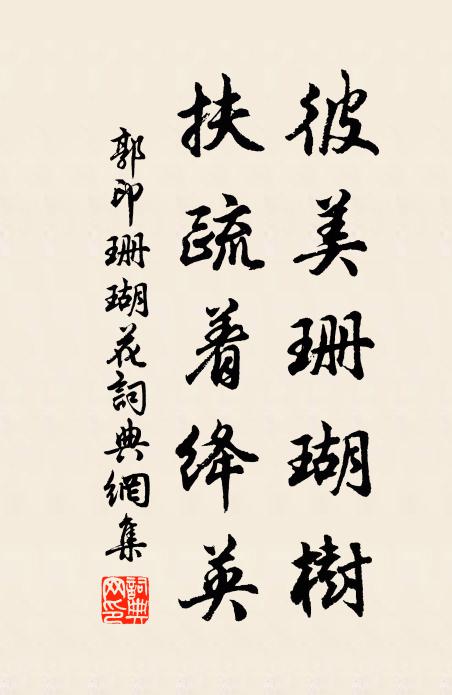 彼美珊瑚樹
扶疏着絳英
郭印珊瑚花詞典網集
詞典
网印